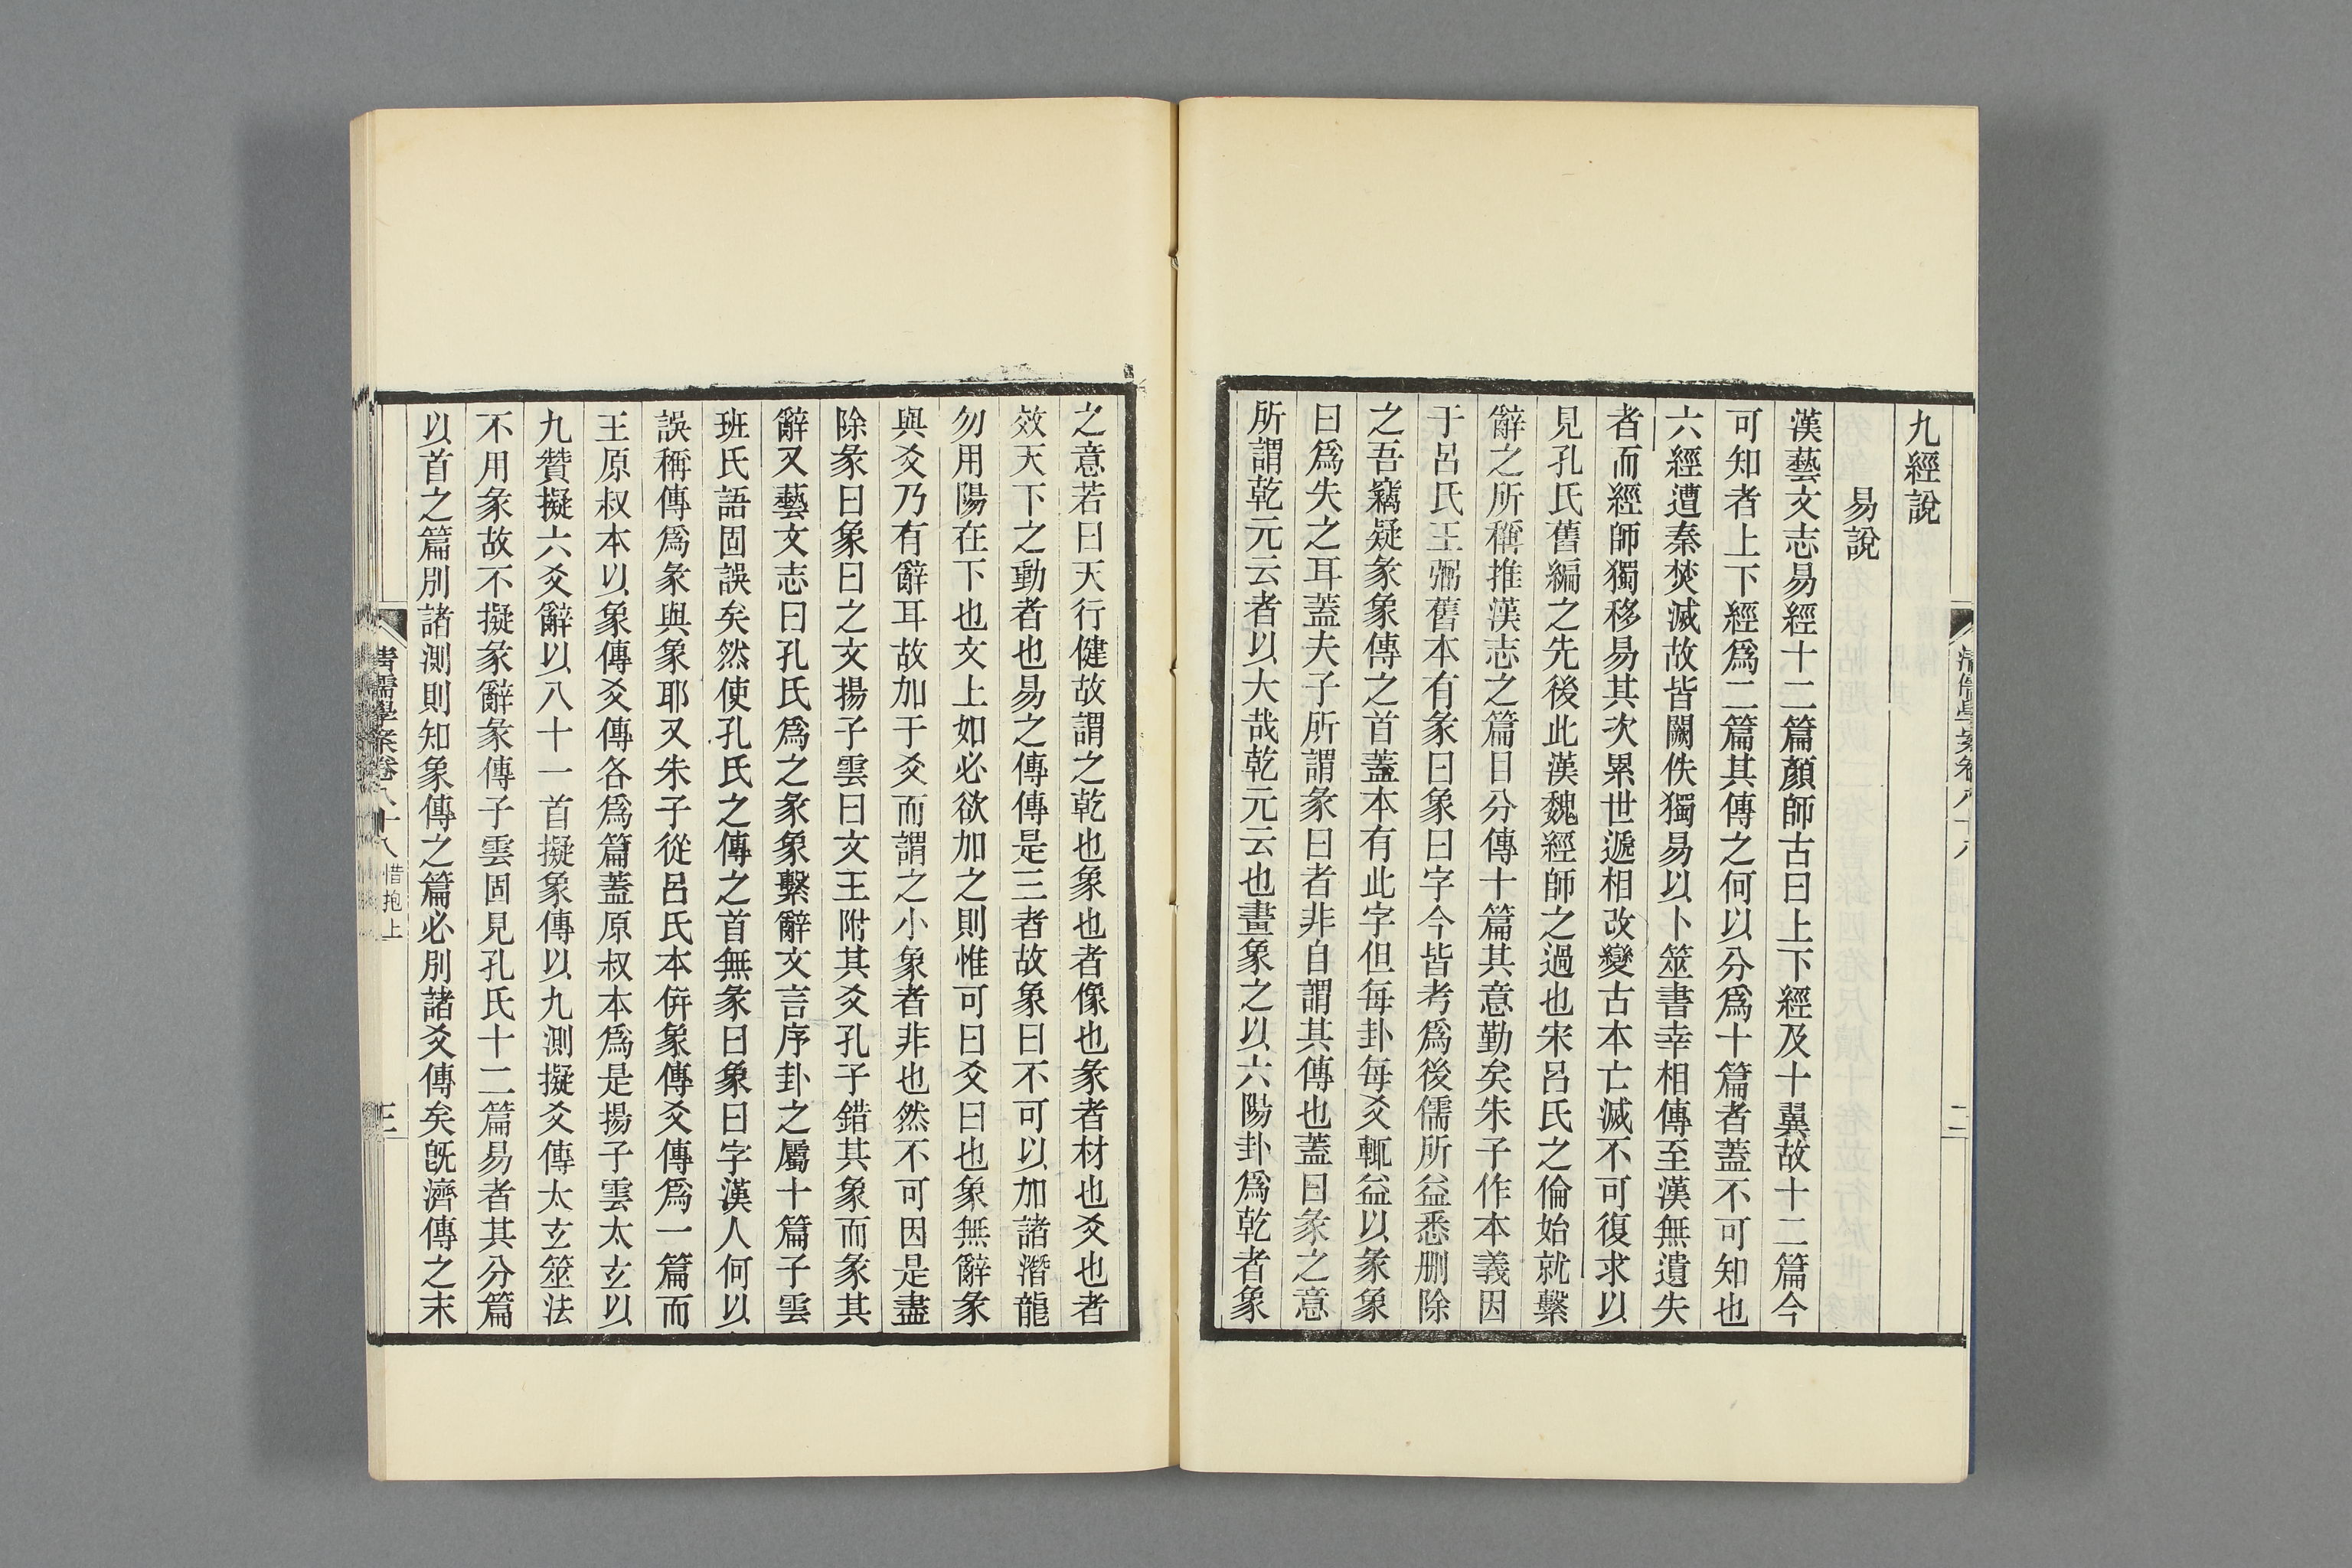 九經說
易說
漢藝文志易經十二篇顏師古曰上下經及十翼故十二篇今
可知者上下經爲二篇其傳之何以分爲十篇者蓋不可知也
六經遭秦焚滅故皆闕佚獨易以卜筮書幸相傳至漢無遺失
者而經師獨移易其次累世遞相改變古本亡滅不可復求以
見孔氏舊編之先後此漢魏經師之過也宋呂氏之倫始就繫
辭之所稱推漢志之篇目分傳十篇其意勤矣朱子作本義因
于呂氏王弼舊本有彖曰象曰字今皆考爲後儒所益悉删除
之吾竊疑彖象傳之首蓋本有此字但每卦每爻輒益以彖象
曰爲失之耳蓋夫子所謂彖曰者非自謂其傳也蓋曰彖之意
所謂乾元云者以大哉乾元云也畫象之以六陽卦爲乾者象
之意若曰天行健故謂之乾也象也者像也彖者材也爻也者
效天下之動者也易之傳傳是三者故象曰不可以加諸潛龍
勿用陽在下也文上如必欲加之則惟可曰爻曰也象無辭彖
與爻乃有辭耳故加于爻而謂之小象者非也然不可因是盡
除彖曰象曰之文揚子雲曰文王附其爻孔子錯其象而彖其
辭又藝文志曰孔氏爲之彖象繫辭文言序卦之屬十篇子雲
班氏語固誤矣然使孔氏之傳之首無彖曰象曰字漢人何以
誤稱傳爲彖與象耶又朱子從呂氏本併象傳爻傳爲一篇而
王原叔本以象傳爻傳各爲篇蓋原叔本爲是揚子雲太玄以
九贊擬六爻辭以八十一首擬象傳以九測擬爻傳太玄筮法
不用彖故不擬彖辭彖傳子雲固見孔氏十二篇易者其分篇
以首之篇別諸測則知象傳之篇必別諸爻傳矣旣濟傳之末
清儒學案卷八十八 惜抱上 三